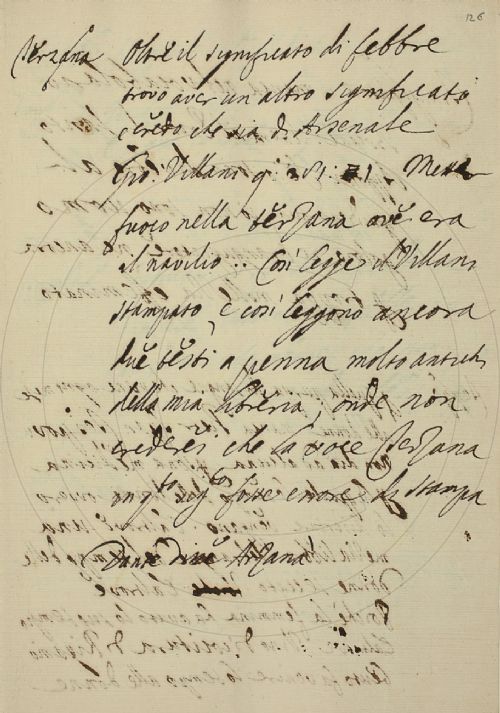 126
Terzana Oltre il significato di febbre
trovo aver un altro significato
e credo che sia di Arsenale
Gio: Villani 9 281: 21. Metter
fuoco nella terzana ove era
il navilio .. Così legge il Villani
stampato, e così leggono ancora
due testi a penna molto antichi
della mia libreria, onde non
crederei che la voce Terzana
in q.to sig.to fosse errore di stampa
Dante disse Arzanà